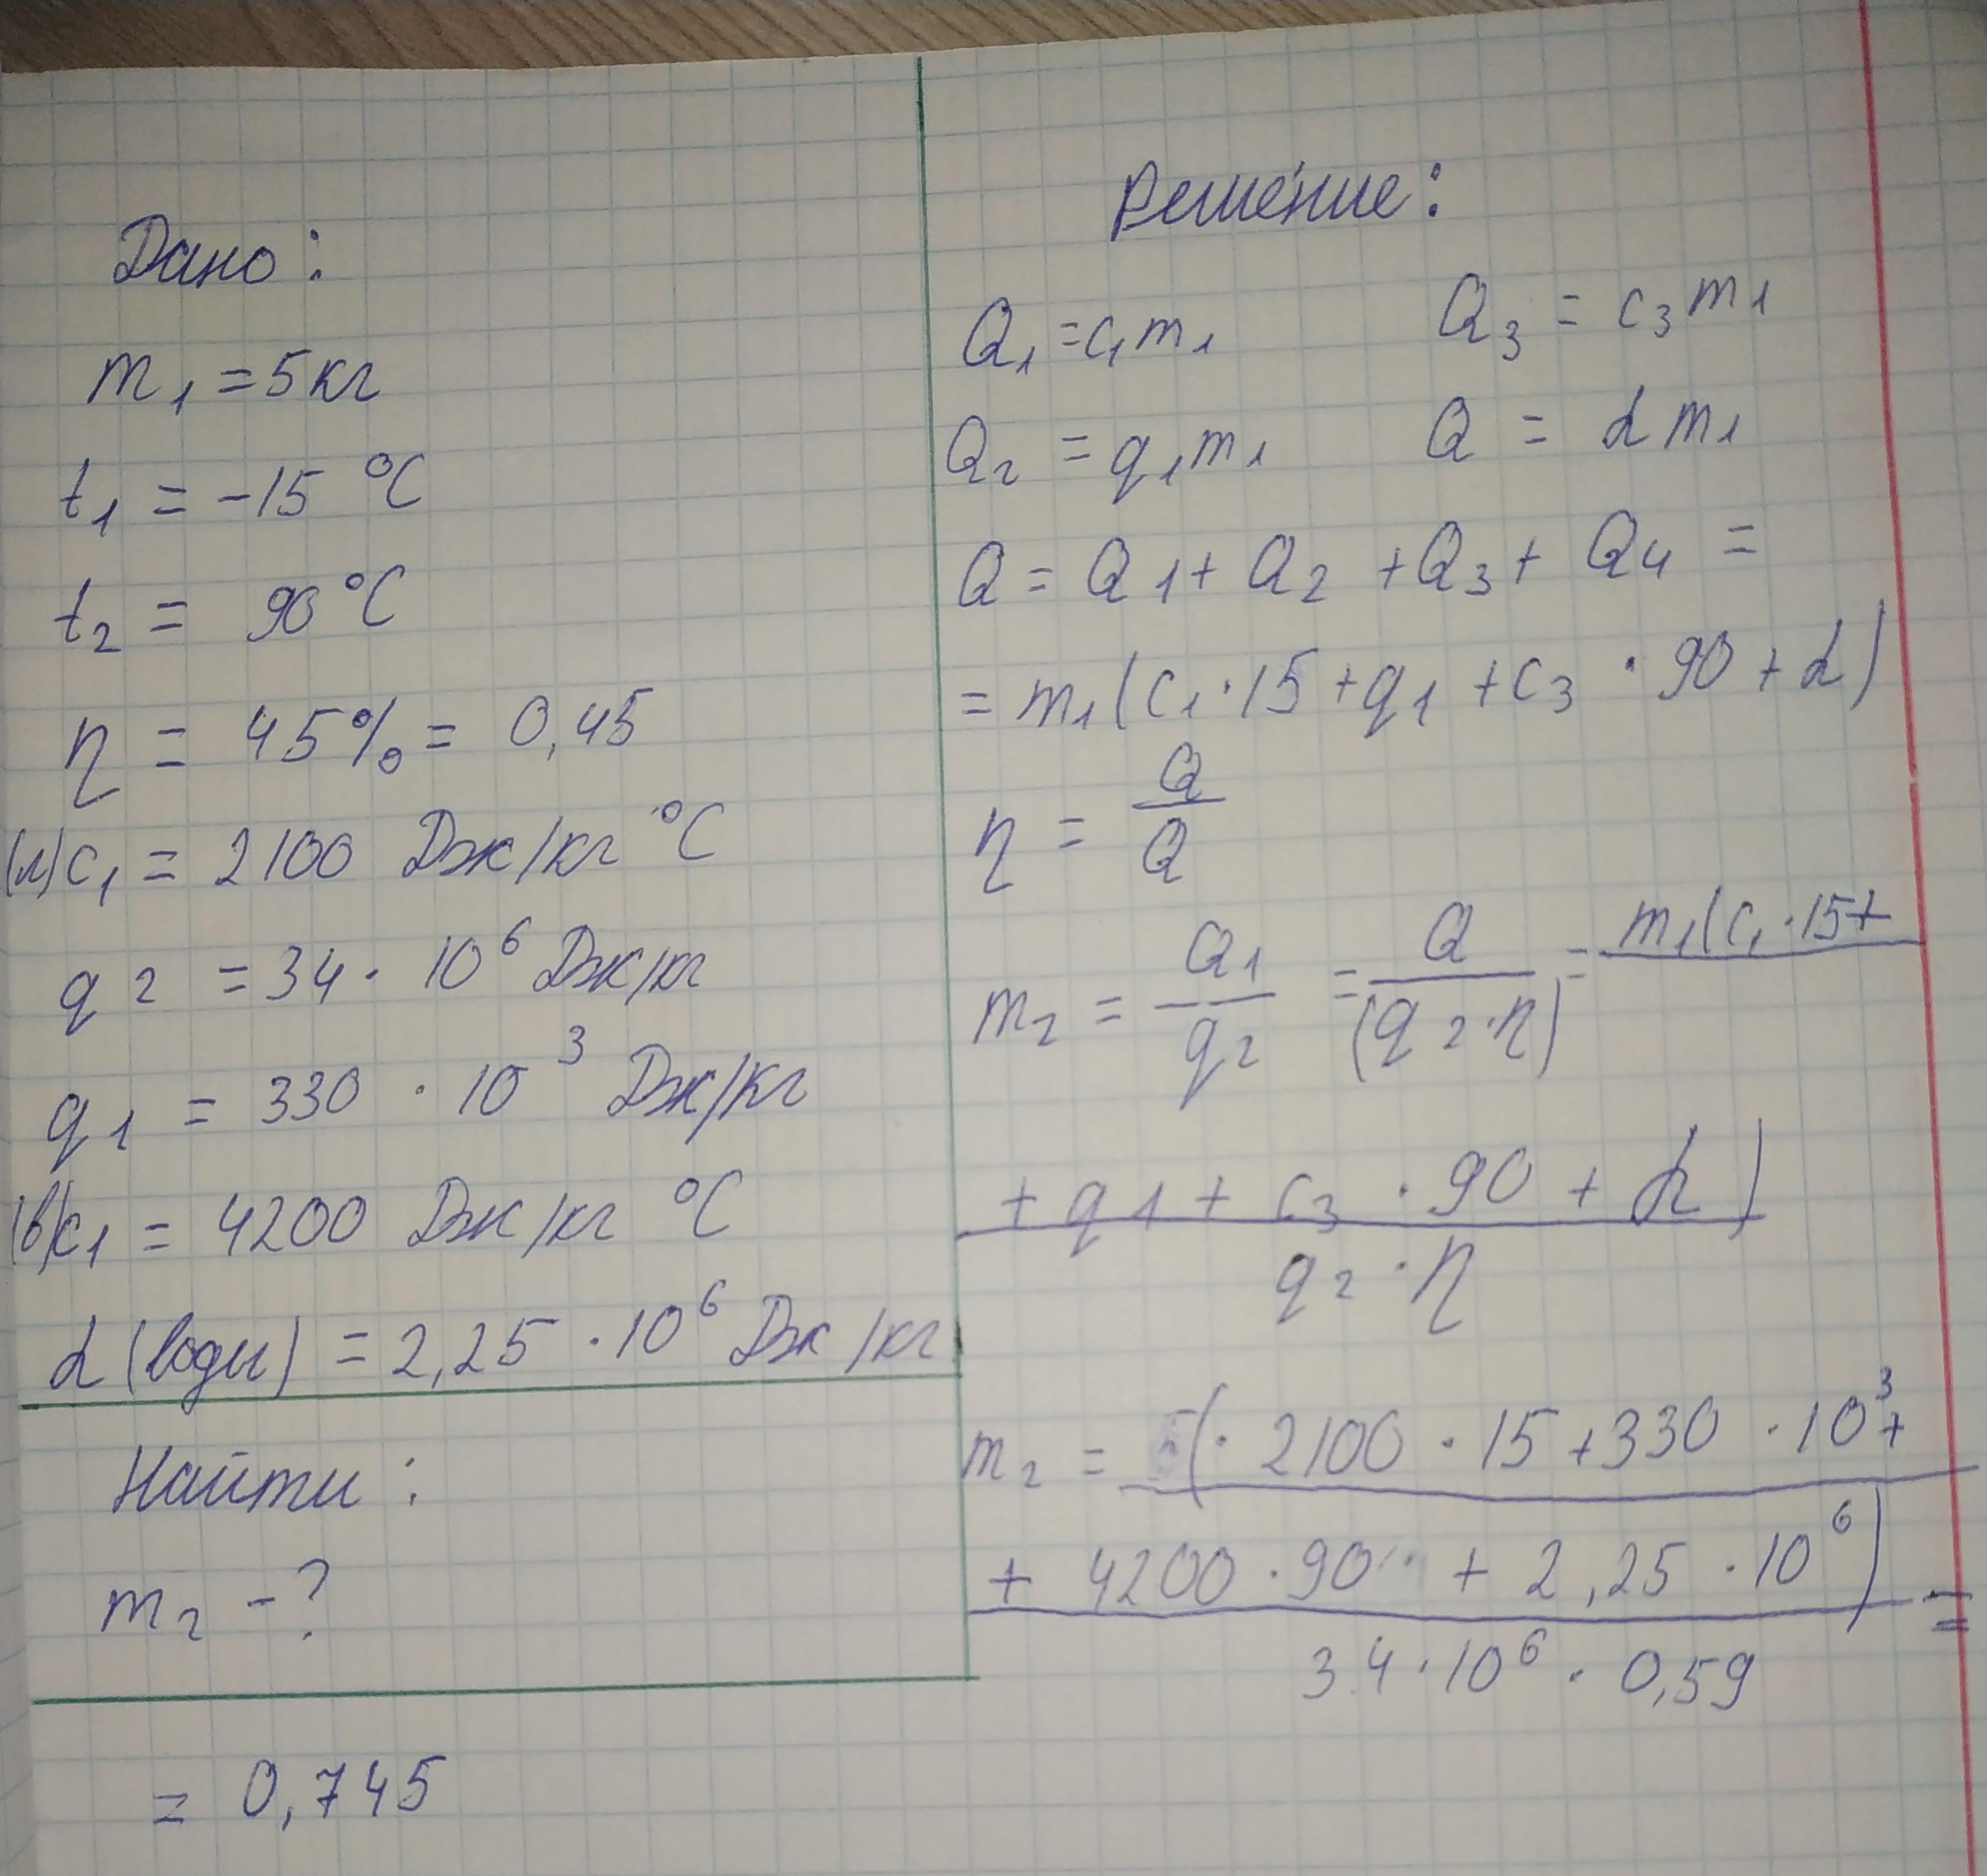 Дано:
m₁ = 5 кг
t₁ = -15 °C
t₂ = 90 °C
η = 45% = 0,45
(л) c₁ = 2100 Дж/кг °C
q₂ = 34 · 10⁶ Дж/кг
q₁ = 330 · 10³ Дж/кг
(в) c₁ = 4200 Дж/кг °C
L (воды) = 2,25 · 10⁶ Дж/кг
Найти:
m₂ - ?
Решение:
Q₁ = c₁m₁ Q₃ = c₃m₁
Q₂ = q₁m₁ Q = L m₁
Q = Q₁ + Q₂ + Q₃ + Q₄ =
= m₁(c₁ · 15 + q₁ + c₃ · 90 + L)
η = Q / Q
m₂ = Q₁ / q₂ = Q / (q₂ · η) = m₁(c₁ · 15 +
+ q₁ + c₃ · 90 + L)
q₂ · η
m₂ = 5(· 2100 · 15 + 330 · 10³ +
+ 4200 · 90 + 2,25 · 10⁶) =
3.4 · 10⁶ · 0,59
= 0,745